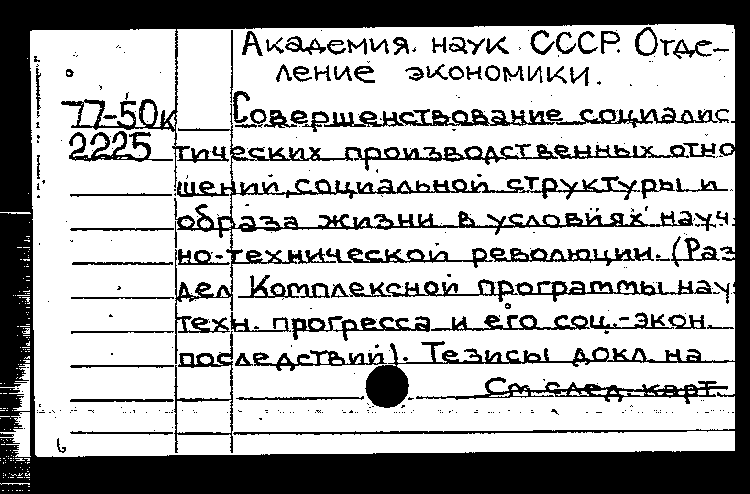 Академия наук СССР. Отде-
ление экономики.
77-50к Совершенствование социалис
2225 тических производственных отно
шений, социальной структуры и
образа жизни в условиях науч.
но-технической революции. (Раз
дел Комплексной программы науч
техн. прогресса и его соц.-экон.
последствий). Тезисы докл. на
См след. карт.
6